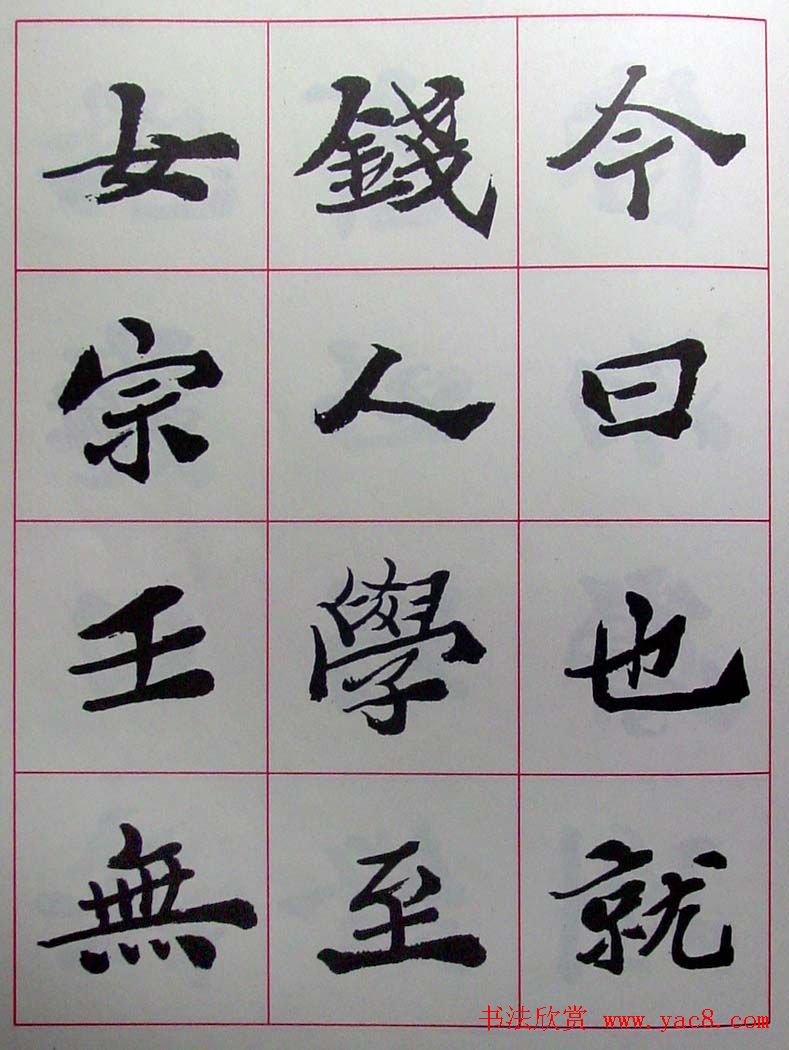 今曰也就
錢人學至
女宗壬無
书法欣赏 www.yac8.com